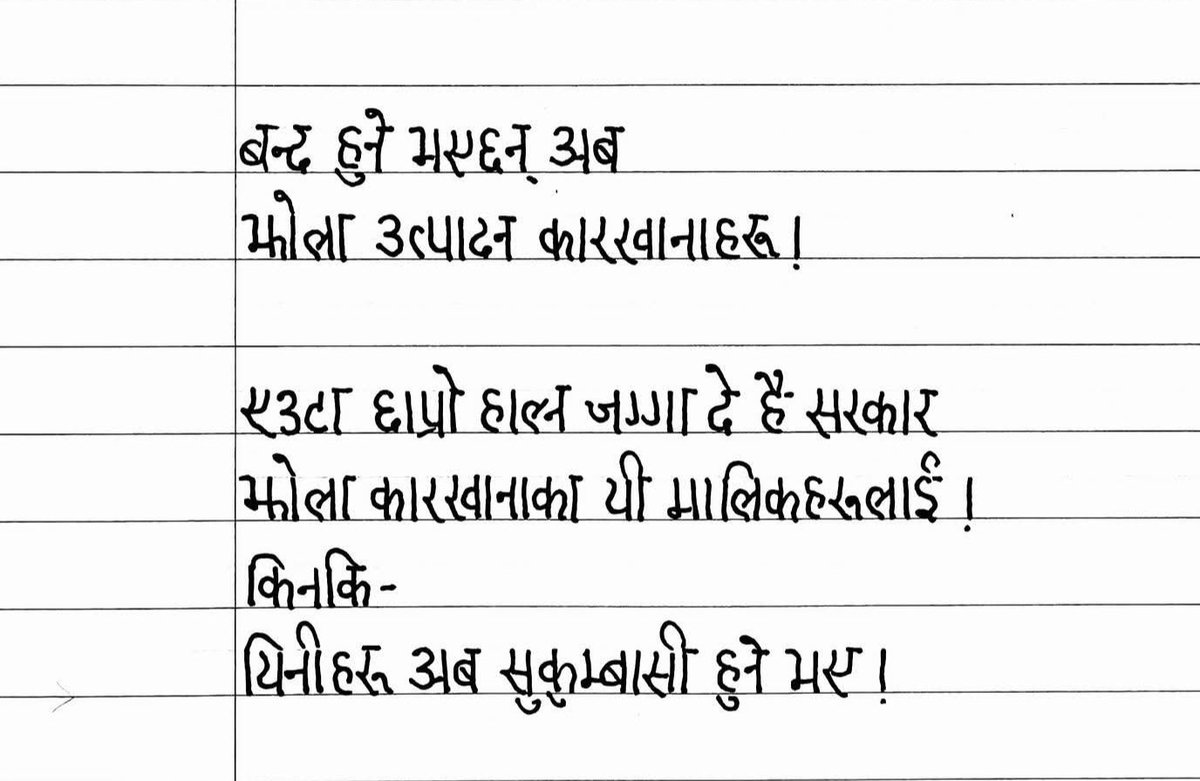 बन्द हुने भएछन् अब
झोला उत्पादन कारखानाहरू!
एउटा छाप्रो हाल्न जग्गा दे है सरकार
झोला कारखानाका यी मालिकहरूलाई!
किनकि-
यिनीहरू अब सुकुम्बासी हुने भए!